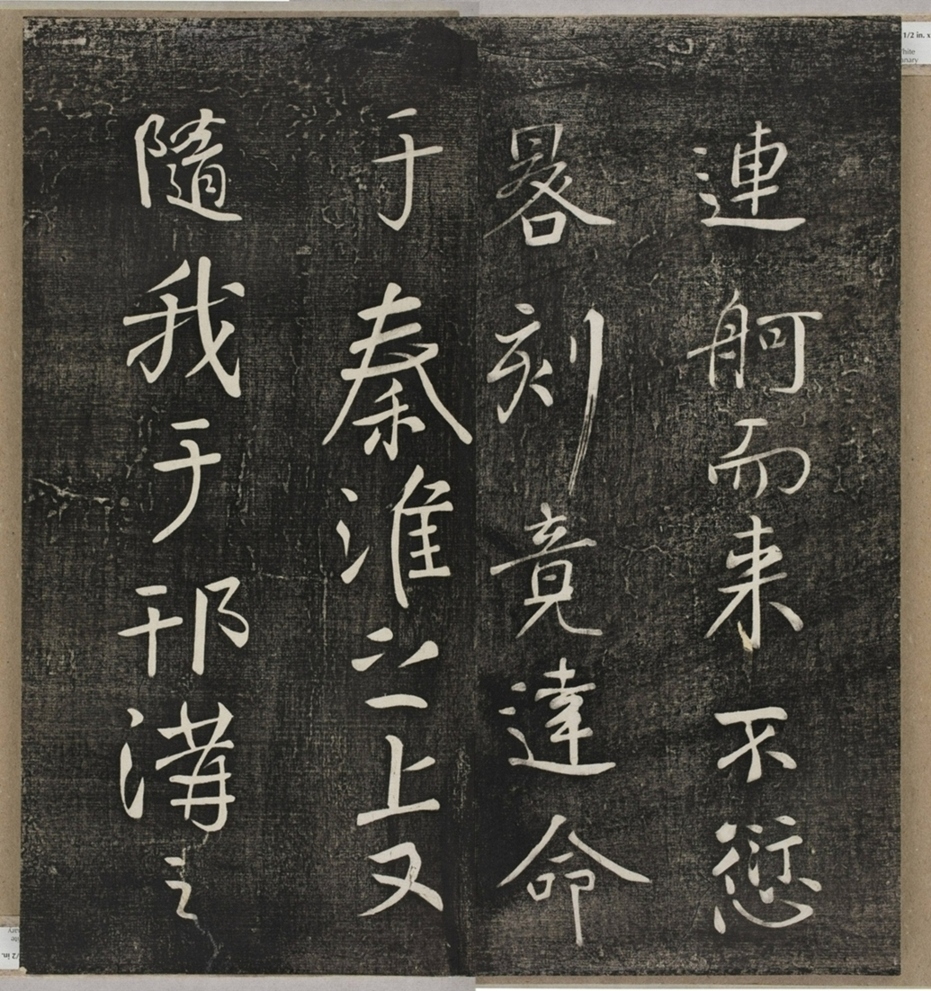 連舸而来不愆
晷刻竟達命
于秦淮之上又
隨我于邗溝之
1/2 in. x